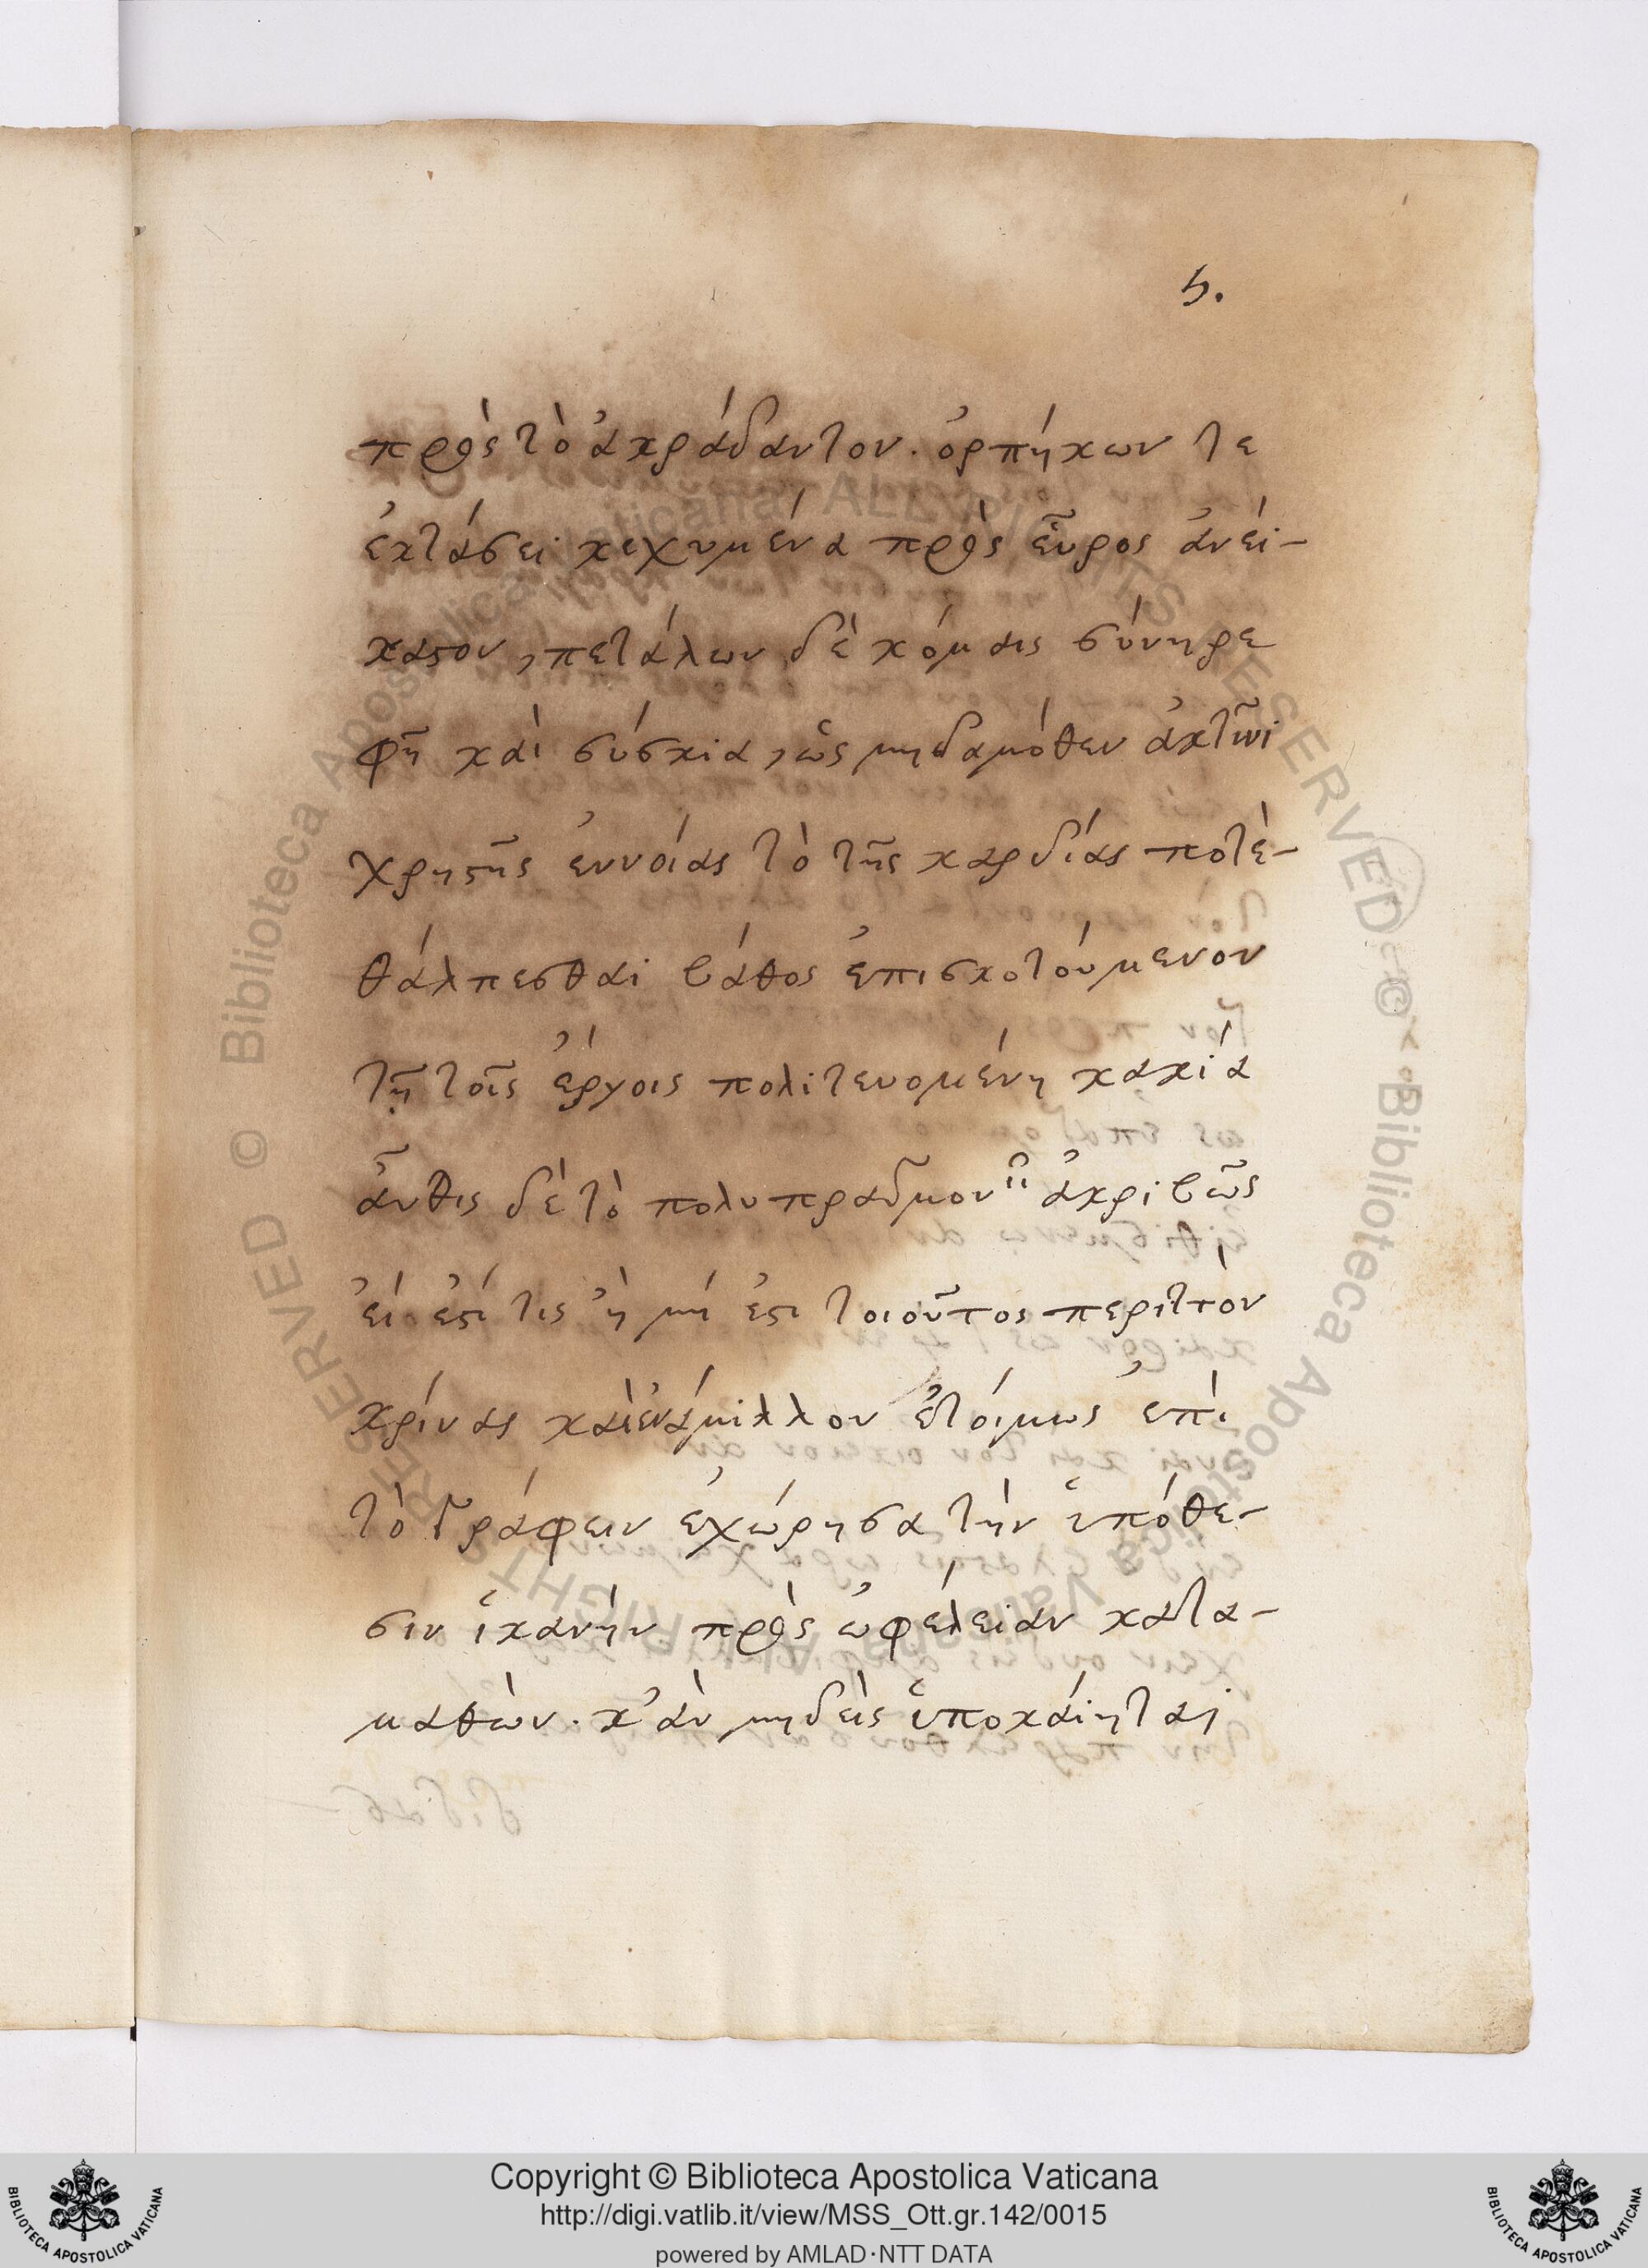 5.
πρὸς τὸ ἀκράδαντον. ὀρπήκων τε
ἐκτάσει κεχυμένα πρὸς εὖρος ἀνεί-
καστον, πετάλων δὲ κόμαις συνηρε
φῆ καὶ σύσκια, ὡς μηδαμόθεν ἀκτῖνι
χρηστῆς ἐννοίας τὸ τῆς καρδίας ποτὲ-
θάλπεσθαι βάθος ἐπισκοτούμενον
τῇ τοῖς ἔργοις πολιτευομένη κακία
αὖθις δὲ τὸ πολυπραγμονεῖν ἀκριβῶς
εἰ ἐστί τις ἢ μή ἐστι τοιοῦτος περιττὸν
κρίνας καὶ ἐνάμιλλον ἑτοίμως ἐπὶ
τὸ γράφειν ἐχώρησα τὴν ὑπόθε-
σιν ἱκανὴν πρὸς ὠφέλειαν κατα-
μαθών. κ'ἂν μηδεὶς ὑποκάιηται
Copyright © Biblioteca Apostolica Vaticana
http://digi.vatlib.it/view/MSS_Ott.gr.142/0015
powered by AMLAD·NTT DATA
BIBLIOTECA APOSTOLICA VATICANA
BIBLIOTECA APOSTOLICA VATICANA